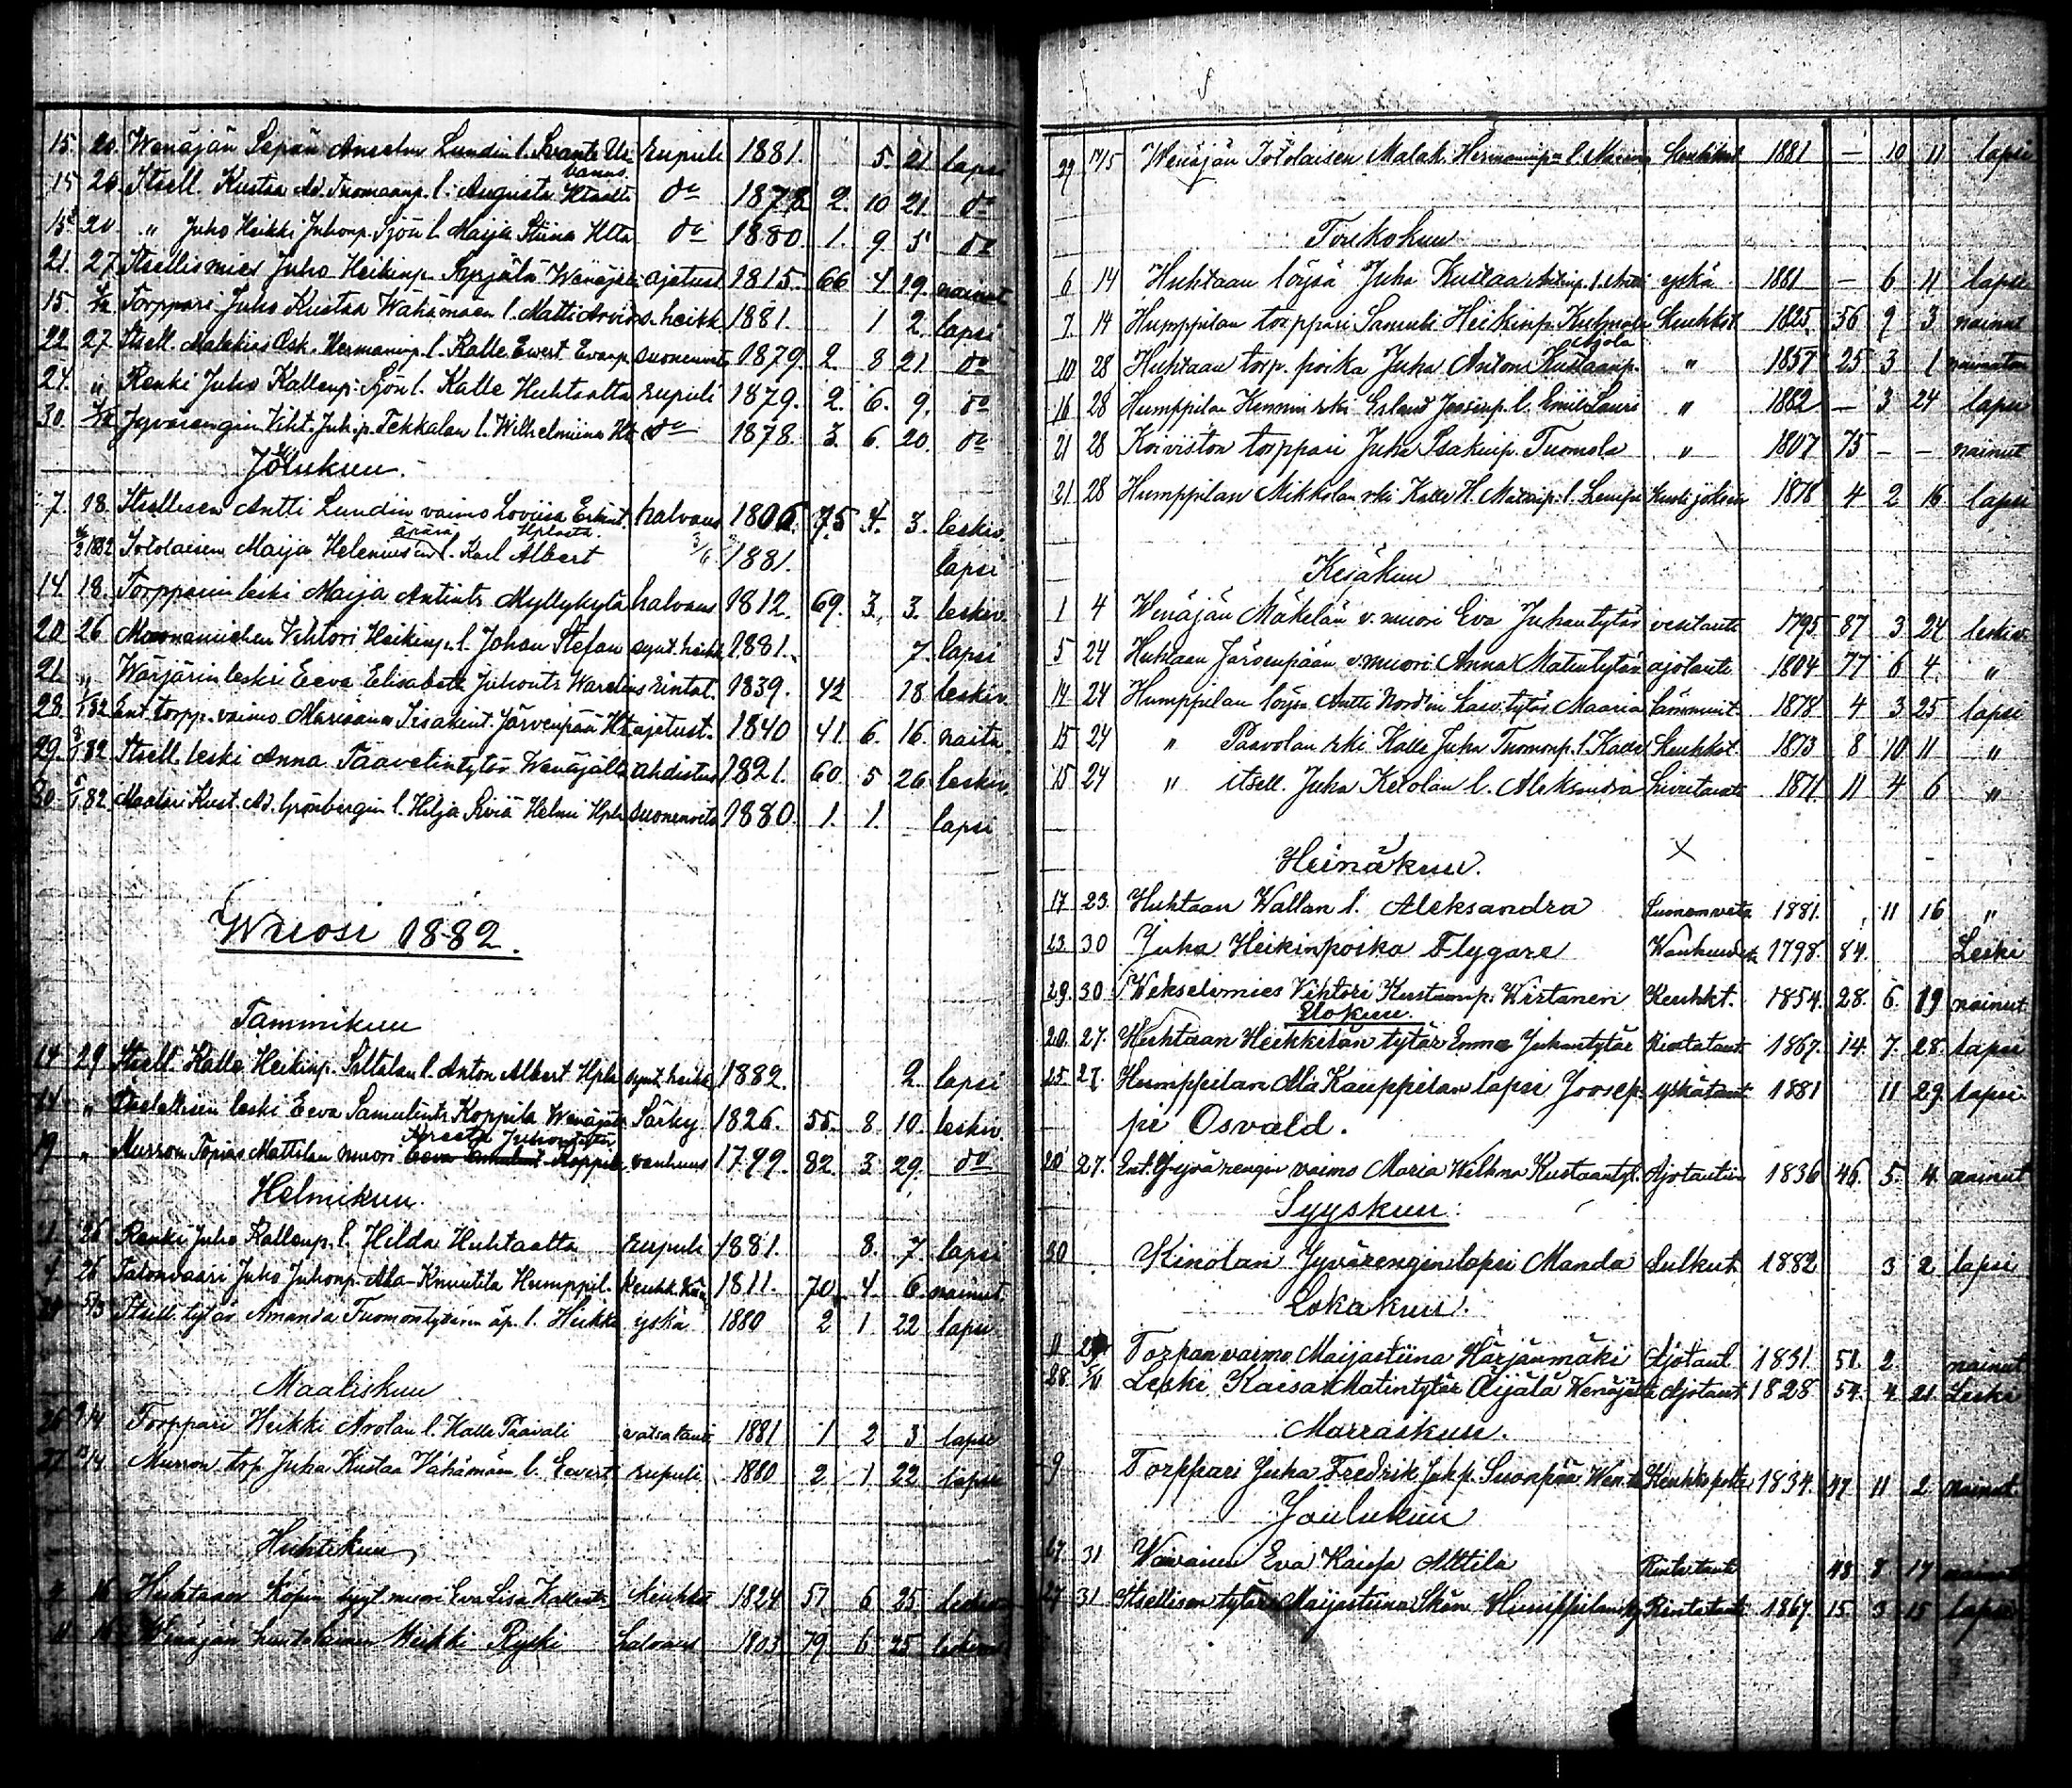 15. 20. Wenäjän Sepän Anselm Lundin l. Svante Ur- rupuli 1881. 5. 21 lapsi
banus.
15 26 Itsell. Kustaa Ad. Tuomaanp. l. Augusta Htaalta do 1878 2. 10 21. do
20 " Juho Heikki Juhonp. Sjön l. Maija Stiina Htta do 1880 1. 9 5 do
21. 27 Itsellismies Juho Heikinp. Wenäjä ajetust 1815. 66 4 19. nainut
15. Torppari Juho Kustaa Wähämäen l. Matti Arvid s. heikk 1881. 1 2. lapsi
22 27 Itsell. Malakias Osk. Hermaninp. l. Kalle Ewert suonenveto 1879. 2. 8 21. do
24. " Renki Juho Kallenp. Sjön l. Kalle Huhtaalta rupuli 1879. 2. 6. 9. do
30. Jyvärengin Viht. Juh.p. Tekkalan l. Wilhelmiina do 1878. 3. 6. 20. do
Joulukuu.
7. 18. Itsellisen Antti Lundin vaimo Loviisa halvaus 1806. 75 4. 3. leskiv.
äpärä Hplasta.
1882 Itolaisen Maija Helenius l. Karl Albert 3/6 1881. lapsi
14. 18. Torpparin leski Maija Antints Myllykylä halvaus 1812. 69. 3. 3. leskiv.
20 26 Vihtori Heikinp. l. Johan Stefan synt. heikk 1881. 7. lapsi
21. " Wärjärin leski Eeva Elisabeta Juhonts Warelius rintat. 1839. 42 18. leskiv.
28. 82 Ent. torpp. vaimo Mariaana Iisakint. Järvenpää Ht ajetust. 1840 41. 6. 16. naitu
29. 82 Itsell. leski Anna Taavetintytär Wenäjältä ahdistus 1821. 60. 5 26. leskiv.
30. 82 Maalari Kust. Ad. Grönbergin l. Hilja Siviä Helmi Hpla suonenveto 1880. 1. 1. lapsi
Wuosi 1882.
Tammikuu
14 29 Itsell. Kalle Heikinp. Siltalan l. Anton Albert Hpla synt. heikk 1882. 2. lapsi
14 " Itsellisen leski Eeva Samulints Koppila Wenäjält Särky 1826. 55. 8. 10. leskiv.
Kreeta Juhontytär
19 " Murron Topias Mattilan muori vanhuus 1799. 82. 3 29. do
Helmikuu.
1 26 Renki Juho Kallenp. l. Hilda Huhtaalta rupuli 1881. 8. 7. lapsi
4. 26 Talonvaari Juho Juhonp. Ala-Knuutila Humppil. 1811. 70 4. 6. nainut
5/3 Itsell. tytär Amanda Tuomontyttären äp. l. Heikki yskä 1880 2 1 22 lapsi
Maaliskuu
26 Torppari Heikki Arolan l. Kalle Taavali vatsataut. 1881 1 2 3 lapsi
27 Murron top. Juha Kustaa Vähämäen l. Evert rupuli 1880 2 1 22 lapsi
Huhtikuu
16 Köpin syyt. muori Eva Lisa Kallents keuhko 1824 57 6 25 leskiv
11 16 Wenäjän Heikki Ryski halvaus 1803 79 6 25 leskimies
29 17/5 Wenäjän Itolaisen Malak. Hermaninp. l. Keuhkot 1881 – 10 11 lapsi
Toukokuu
6 14 Huhtaan löysä Juha Kustaa yskä 1881 – 6 11 lapsi
7. 14 Humppilan torppari Samuli Heikinp. Keuhkot 1825. 56 9 3 nainut
10 28 Huhtaan torp. poika Juha Antoni Kustaanp. " 1857 25 3 1 naimaton
16 28 Humppilan l. Emil Lauri " 1882 – 3 24 lapsi
21 28 Koiviston torppari Juha Isakinp. Tuomola " 1807 75 – – nainut
21. 28 Humppilan Mikkolan rki Kalle H. l. 1878 4 2 16 lapsi
Kesäkuu
1 4 Wenäjän Mäkelän v. muori Eva Juhantytär vesitauti 1795 87 3 24 leskiv.
5 24 Huhtaan Järvenpään v. muori Anna Matintytär ajotauti 1804 77 6 4. "
14 24 Humppilan löysä Antti Nordin kasv. tytär Maaria 1878 4 3 25 lapsi
15 24 " Paavolan rki Kalle Juha Tuomonp. l. Kalle Keuhkot. 1873 8 10 11 "
15 24 " itsell. Juha Ketolan l. Aleksandra 1871 11 4 6 "
Heinäkuu.
17 23. Huhtaan Wallan l. Aleksandra Suonenveto 1881. 11 16 "
23. 30 Juha Heikinpoika Flygare Wanhuus 1798. 84. Leski
29. 30 Wekselimies Vihtori Kustaanp. Wirtanen Keuhkt. 1854. 28. 6. 19 nainut
Elokuu.
20. 27. Huhtaan Heikkilän tytär Emma Juhantytär Rintataut. 1867. 14. 7. 28. lapsi
25. 27. Humppilan Ala Kauppilan lapsi Joosep- yskätaut. 1881 11 29. lapsi.
pi Osvald.
20 27. Ent. Jyvärengin vaimo Maria Wilhma Kustaantyt. Ajotautiin 1836 46. 5. 4. nainut
Syyskuu:
30 Kinolan Jyvärengin lapsi Manda Sulkut. 1882 3 2 lapsi
Lokakuu.
11 29 Torpan vaimo Maijastiina Härjänmäki Ajotaut 1831. 51. 2 nainut
28. 5/11 Leski Kaisa Matintytär Äijälä Wenäjältä Ajotaut. 1828 54. 4 21. Leski
Marraskuu.
9 Torppari Juha Fredrik Juh.p. Suonpää Wen.lä Keuhkopoltto 1834. 47 11 2 nainut.
Joulukuu
27. 31 Eva Kaisa Attila Rintatauti 48 8 17
27 31 Itsellisen tytär Maijastiina Skön Humppilan Rintataut 1867. 15. 3 15 lapsi